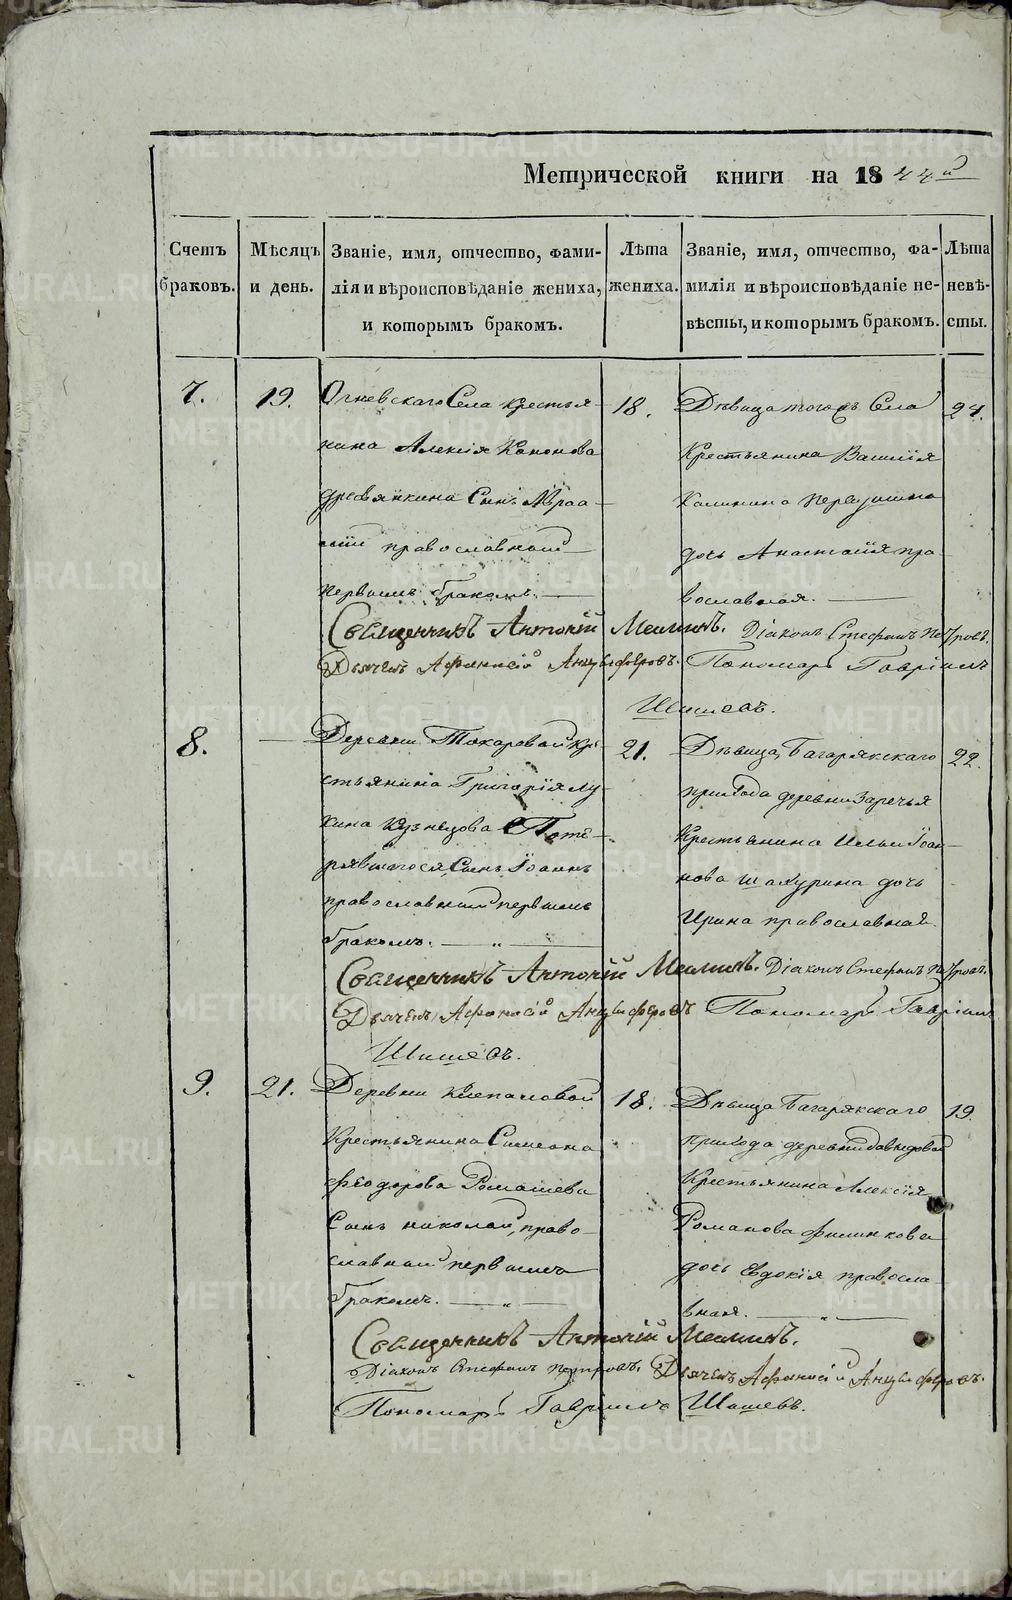 Метрической книги на 1844й
Счетъ браковъ.
Мѣсяцъ и день.
Званіе, имя, отчество, фами-
лія и вѣроисповѣданіе жениха,
и которымъ бракомъ.
Лѣта жениха.
Званіе, имя, отчество, фа-
милія и вѣроисповѣданіе не-
вѣсты, и которымъ бракомъ.
Лѣта невѣ-
сты.
7.
19.
Огневскаго Села крестья-
нина Алексія Кононова
древянкина Сынъ
православный
первымъ бракомъ.
18.
Дѣвица тогожъ Села
Крестьянина Василія
Калинина
дочь Анастасія пра-
вославная.
Священникъ Антоній Діаконъ Стефанъ Петровъ.
Дьячекъ Афанасій Анцыферовъ. Пономарь Гавріилъ
Шишевъ.
8.
Деревни Токаровой кре-
стьянина Григорія Лу-
кина Кузнецова Поте-
рявшагося, Сынъ Іоаннъ
православный первымъ
бракомъ. — „ —
21.
Дѣвица, Багарякскаго
прихода деревни Заречья
Крестьянина Ильи Іоан-
нова дочь
Ирина православная.
22.
Священникъ Антоній Діаконъ Стефанъ Петровъ.
Дьячекъ Афанасій Анцыферовъ Пономарь Гавріилъ
Шишевъ.
9.
21.
Деревни Клепаловой
Крестьянина Симеона
Феодорова Ромашева
Сынъ николай, право-
славный первымъ
бракомъ. — „ —
18.
Дѣвица Багарякскаго
прихода деревни Давыдовой
Крестьянина Алексія
Романова филинкова
дочь Евдокія правосла-
вная. — „ —
19.
Священникъ Антоній
Діаконъ Стефанъ Петровъ. Дьячекъ Афанасій Анцыферовъ.
Пономарь Гавріилъ Шишевъ.
METRIKI.GASO-URAL.RU